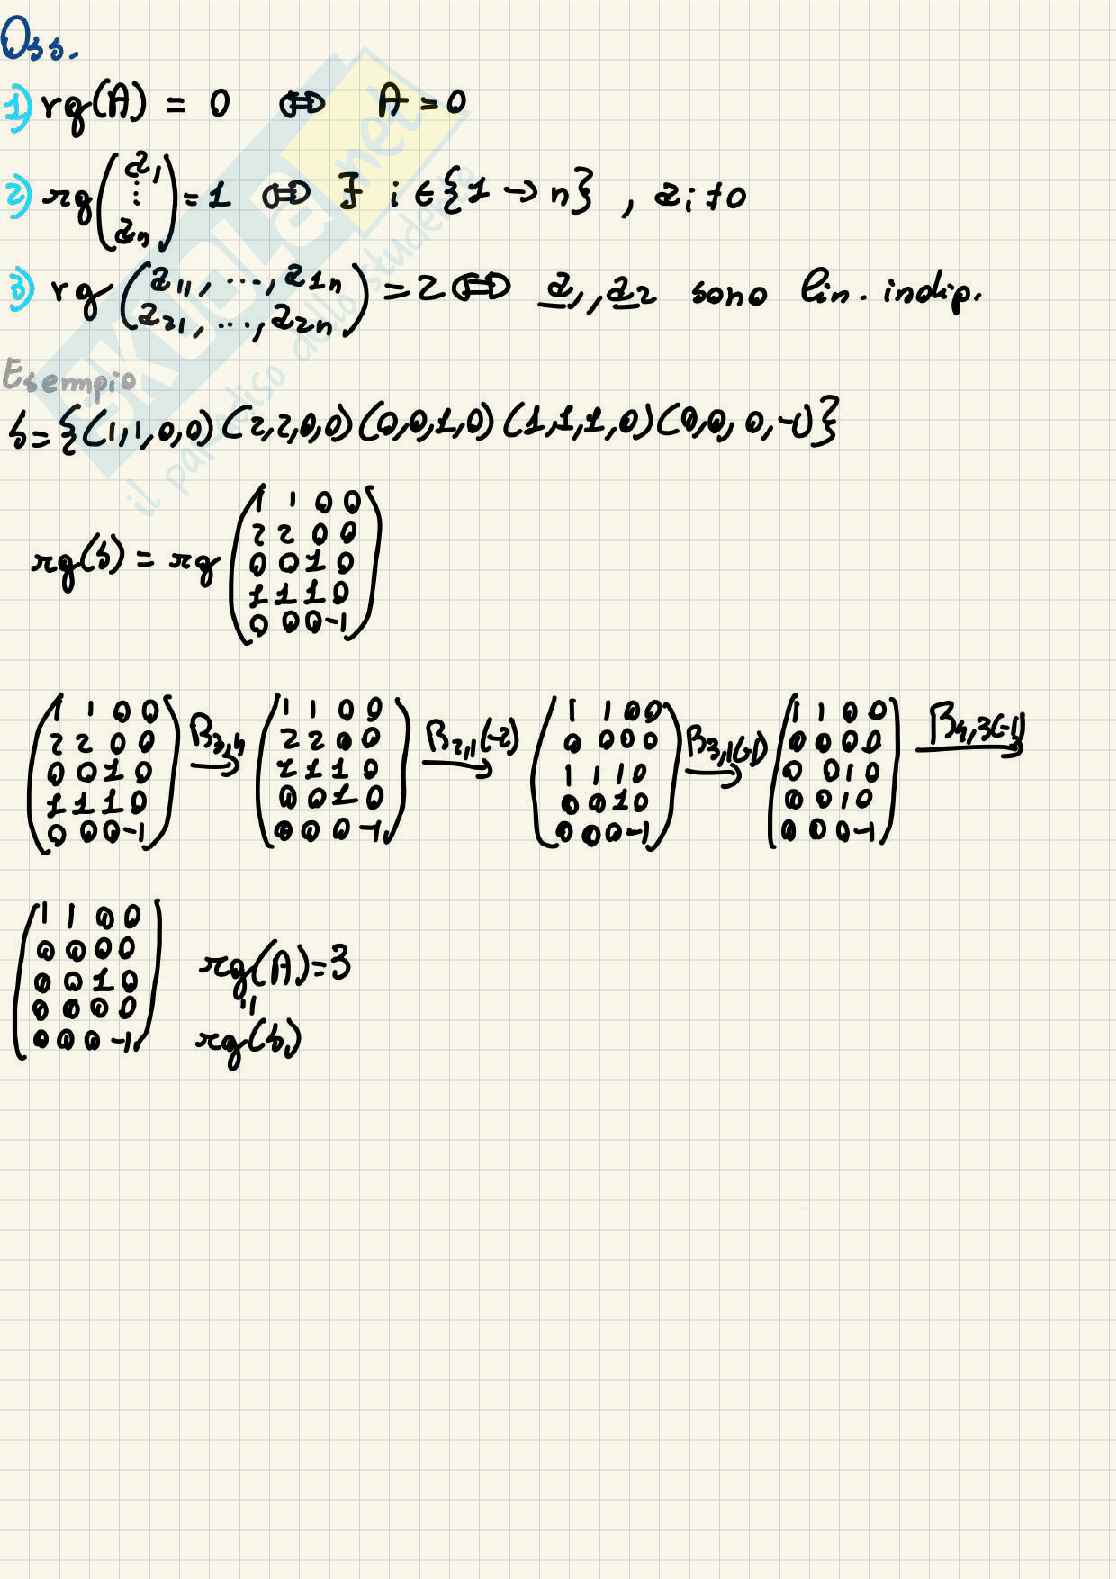 Oss.
1) rg(A) = 0 ⇔ A = 0
2) rg(a₁ ⋮ aₙ) = 1 ⇔ ∃ i ∈ {1 → n} , aᵢ ≠ 0
3) rg(a₁₁, ..., a₁ₙ
a₂₁, ..., a₂ₙ) = 2 ⇔ a₁, a₂ sono lin. indip.
Esempio
S = {(1,1,0,0) (2,2,0,0) (0,0,1,0) (1,1,1,0) (0,0,0,-1)}
rg(S) = rg
1 1 0 0
2 2 0 0
0 0 1 0
1 1 1 0
0 0 0 -1
1 1 0 0
2 2 0 0
0 0 1 0
1 1 1 0
0 0 0 -1
B₃,₄ →
1 1 0 0
2 2 0 0
1 1 1 0
0 0 1 0
0 0 0 -1
B₂,₁(-2) →
1 1 0 0
0 0 0 0
1 1 1 0
0 0 1 0
0 0 0 -1
B₃,₁(-1) →
1 1 0 0
0 0 0 0
0 0 1 0
0 0 1 0
0 0 0 -1
B₄,₃(-1) →
1 1 0 0
0 0 0 0
0 0 1 0
0 0 0 0
0 0 0 -1
rg(A) = 3
"
rg(S)
SKUOLA.net
il paradiso dello studente